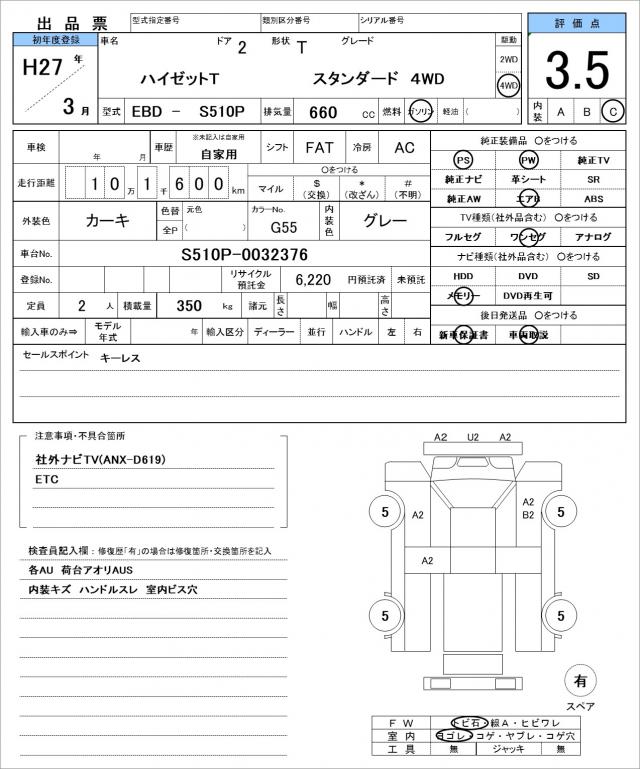 出品票 型式指定番号 類別区分番号 シリアル番号 評価点
初年度登録 車名 ドア 2 形状 T グレード 駆動
H27年 ハイゼットT スタンダード 4WD 2WD 3.5
3月 4WD
型式 EBD － S510P 排気量 660 cc 燃料 ガソリン 軽油 ( ) 内装 A B C
車検 年 月 車歴 ※未記入は自家用 自家用 シフト FAT 冷房 AC 純正装備品 〇をつける
PS PW 純正TV
走行距離 10万1千600km 〇をつける
マイル $(交換) *(改ざん) #(不明) 純正ナビ 革シート SR
純正AW エアB ABS
外装色 カーキ 色替 元色 カラーNo. G55 内装色 グレー TV種類(社外品含む) 〇をつける
全P ( ) フルセグ ワンセグ アナログ
車台No. S510P-0032376 ナビ種類(社外品含む) 〇をつける
登録No. リサイクル預託金 6,220 円預託済 未預託 HDD DVD SD
定員 2 人 積載量 350 kg 諸元 長さ 幅 高さ メモリー DVD再生可
後日発送品 〇をつける
輸入車のみ⇒ モデル年式 年 輸入区分 ディーラー 並行 ハンドル 左 右 新車保証書 車両取説
セールスポイント キーレス
注意事項・不具合箇所
社外ナビTV(ANX-D619)
ETC
検査員記入欄：修復歴「有」の場合は修復箇所・交換箇所を記入
各AU 荷台アオリAUS
内装キズ ハンドルスレ 室内ビス穴
A2 U2 A2
5 A2 A2 B2 5
A2
5 5
有
スペア
FW トビ石・線A・ヒビワレ
室内 ヨゴレ・コゲ・ヤブレ・コゲ穴
工具 無 ジャッキ 無